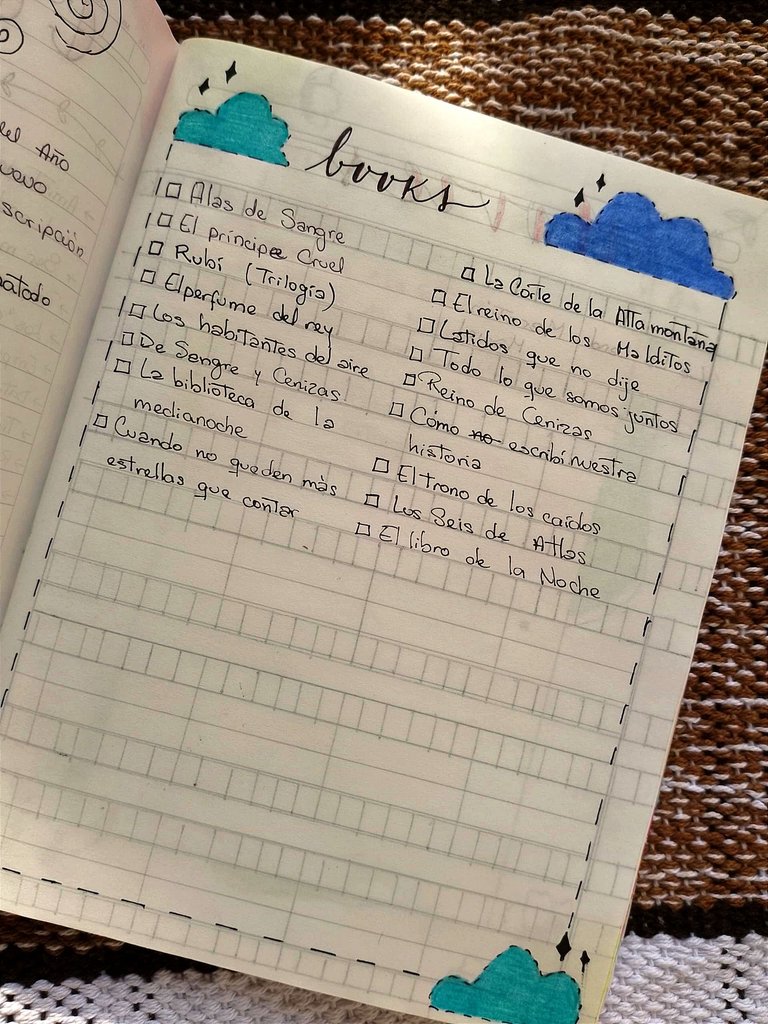 el Año
uevo
scripción
patado
books
Alas de Sangre
El príncipe Cruel
Rubí (Trilogía)
El perfume del rey
Los habitantes del aire
De Sangre y Cenizas
La biblioteca de la
medianoche
Cuando no queden más
estrellas que contar
La Corte de la Alta montaña
El reino de los Malditos
Latidos que no dije
Todo lo que somos juntos
Reino de Cenizas
Cómo no escribí nuestra
historia
El trono de los caídos
Los Seis de Atlas
El libro de la Noche